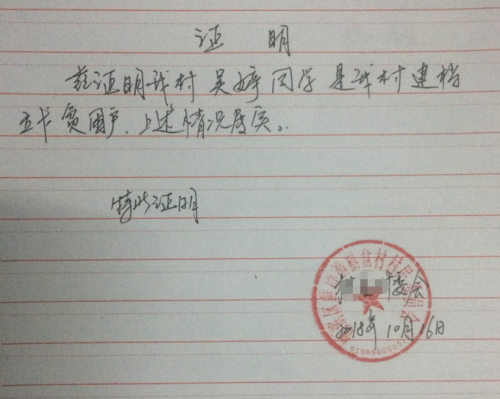 证 明
兹证明我村 吴婷 同学 是我村建档
立卡贫困户,上述情况属实。
特此证明
村委会
2018年10月16日